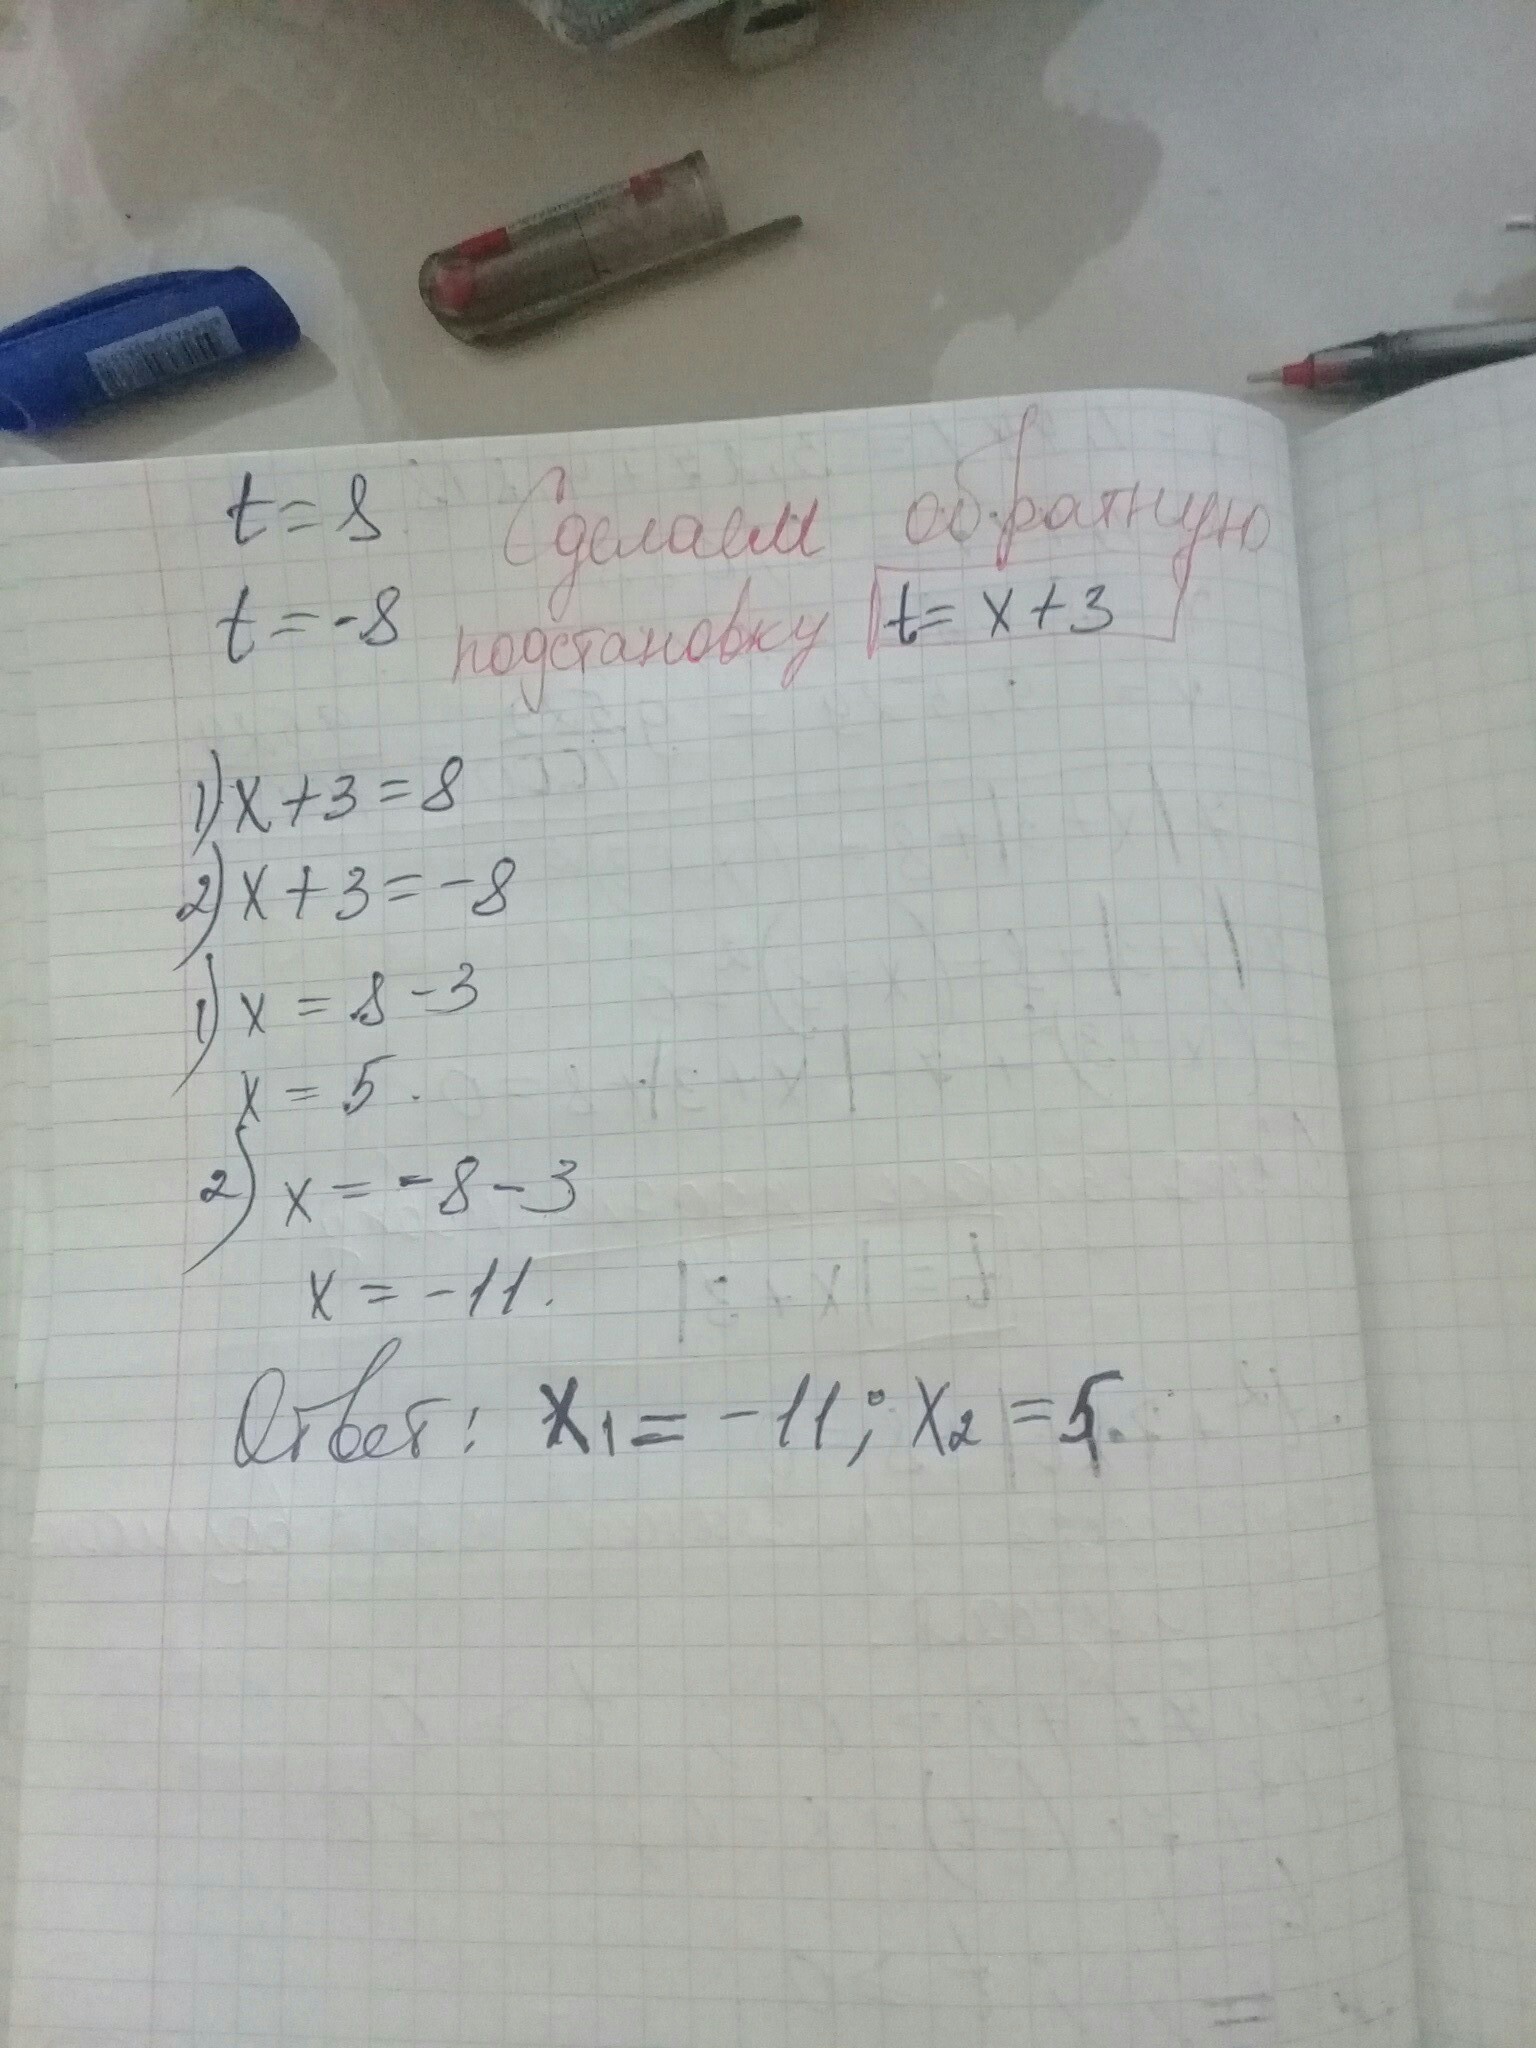 t = 8 Сделаем обратную
t = -8 подстановку t = x + 3
1) x + 3 = 8
2) x + 3 = -8
1) x = 8 - 3
x = 5.
2) x = -8 - 3
x = -11.
Ответ: x₁ = -11; x₂ = 5.